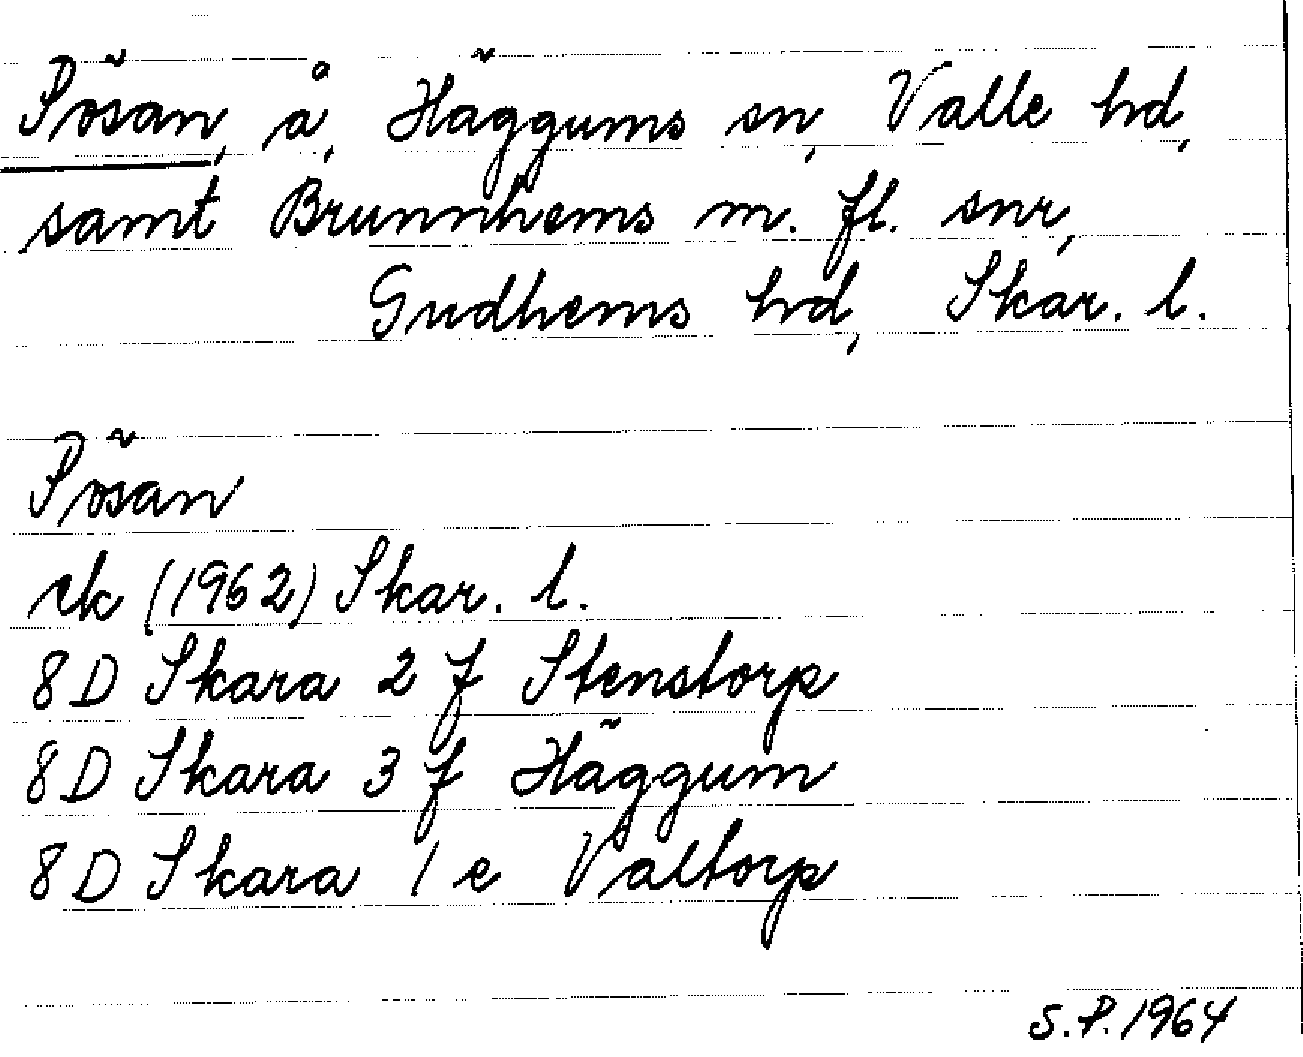 Pösan, å, Häggums sn, Valle hd,
samt Brunnhems m. fl. snr,
Gudhems hd, Skar. l.
Pösan
ek (1962) Skar. l.
8 D Skara 2 f Stenstorp
8 D Skara 3 f Häggum
8 D Skara 1 e Valtorp
S.P. 1964